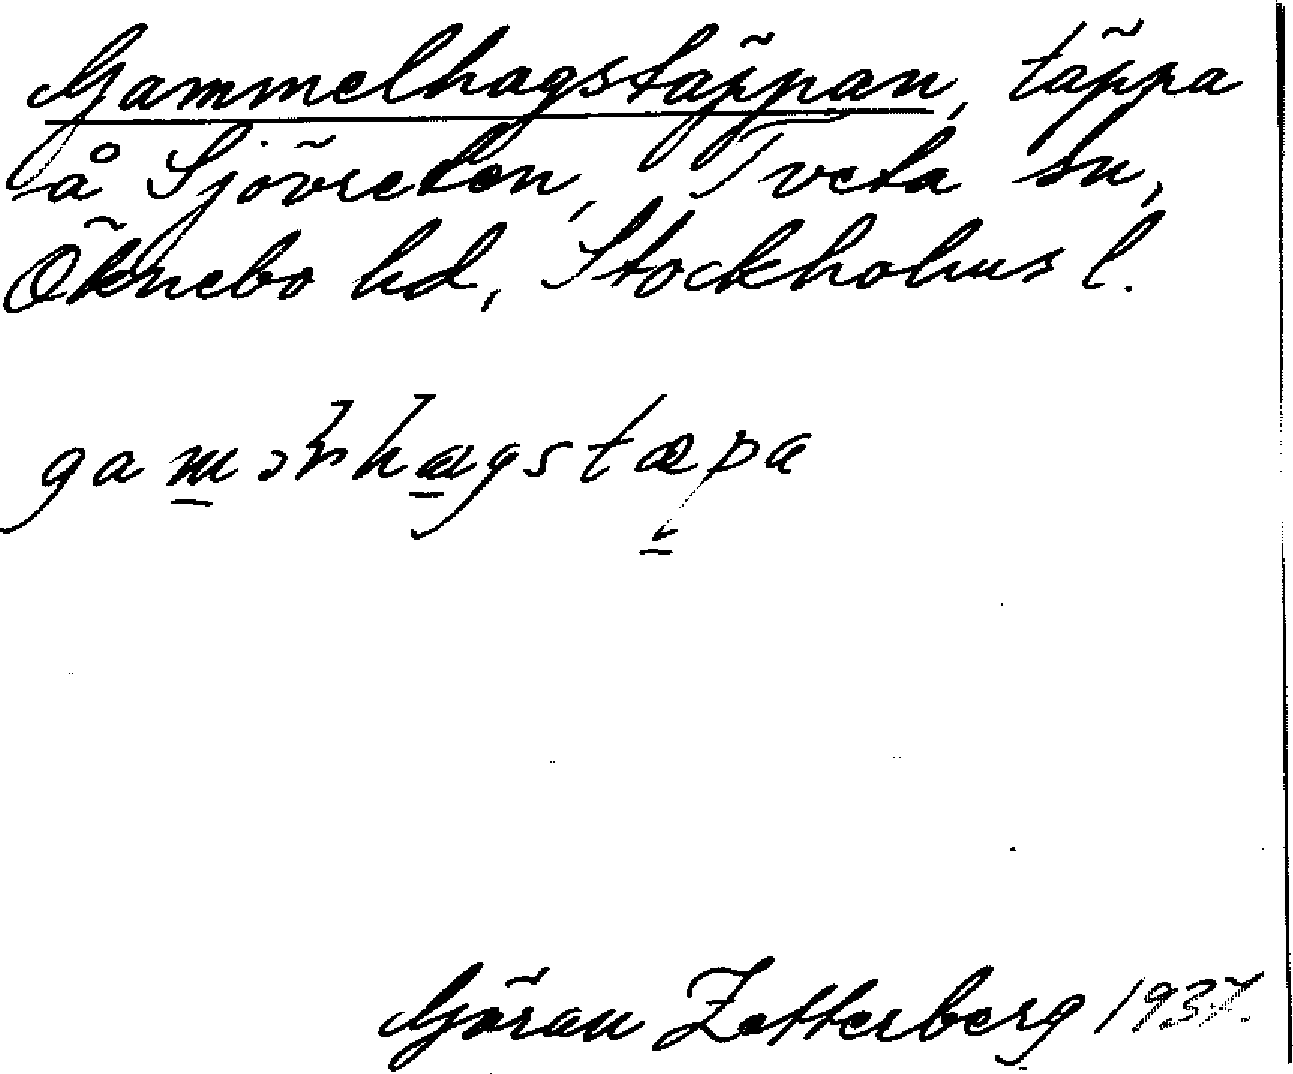 Gammelhagstäppan, täppa
å Sjövreten, Tveta sn,
Öknebo hd, Stockholms l.
Göran Zetterberg 1937.